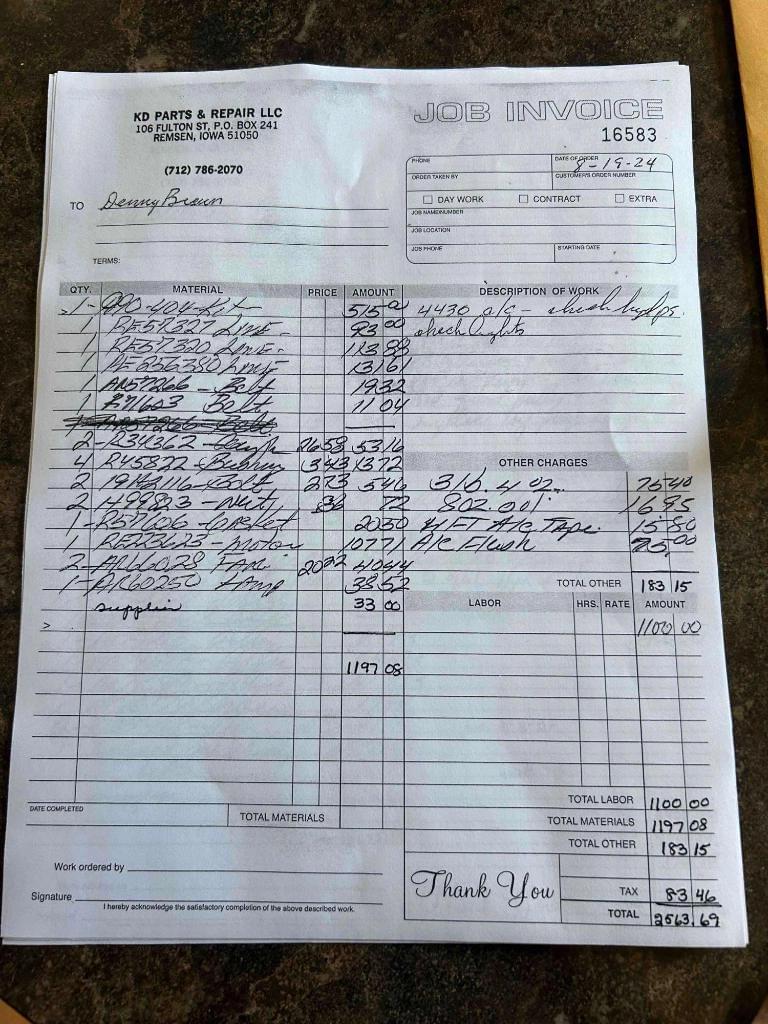 KD PARTS & REPAIR LLC
106 FULTON ST, P.O. BOX 241
REMSEN, IOWA 51050
(712) 786-2070
JOB INVOICE
16583
PHONE
DATE OF ORDER
8-19-24
ORDER TAKEN BY
CUSTOMER'S ORDER NUMBER
DAY WORK CONTRACT EXTRA
JOB NAME/NUMBER
JOB LOCATION
JOB PHONE
STARTING DATE
TO Denny Braun
TERMS:
QTY. MATERIAL PRICE AMOUNT DESCRIPTION OF WORK
1 - 990-404-Kit 515 00 4430 a/c - check
1 RE57327 Line - 93 00 check lights
1 RE57320 Line - 113 88
1 AE256380 131 61
1 AR57266 - Belt 19 32
1 R71603 Belt 11 04
2 - R34362 26 58 53 16
4 R45822 - 3 43 13 72
OTHER CHARGES
2 19H2116 - Bolt 2 73 5 46 316. 4 oz. 75 40
2 H99823 - Nut 36 72 8 oz. oil 16 95
1 - R57606 - Gasket 20 50 4 FT A/C Tape 15 80
1 RE223623 - motor 107 71 A/C Flush 75 00
2 - AR66028 Fan 20 22 40 44
1 - AR60250 Lamp 38 52
TOTAL OTHER 183 15
supplies 33 00
LABOR HRS. RATE AMOUNT
1100 00
1197 08
DATE COMPLETED
TOTAL MATERIALS
TOTAL LABOR 1100 00
TOTAL MATERIALS 1197 08
TOTAL OTHER 183 15
Work ordered by
Thank You
Signature
I hereby acknowledge the satisfactory completion of the above described work.
TAX 83 46
TOTAL 2563.69